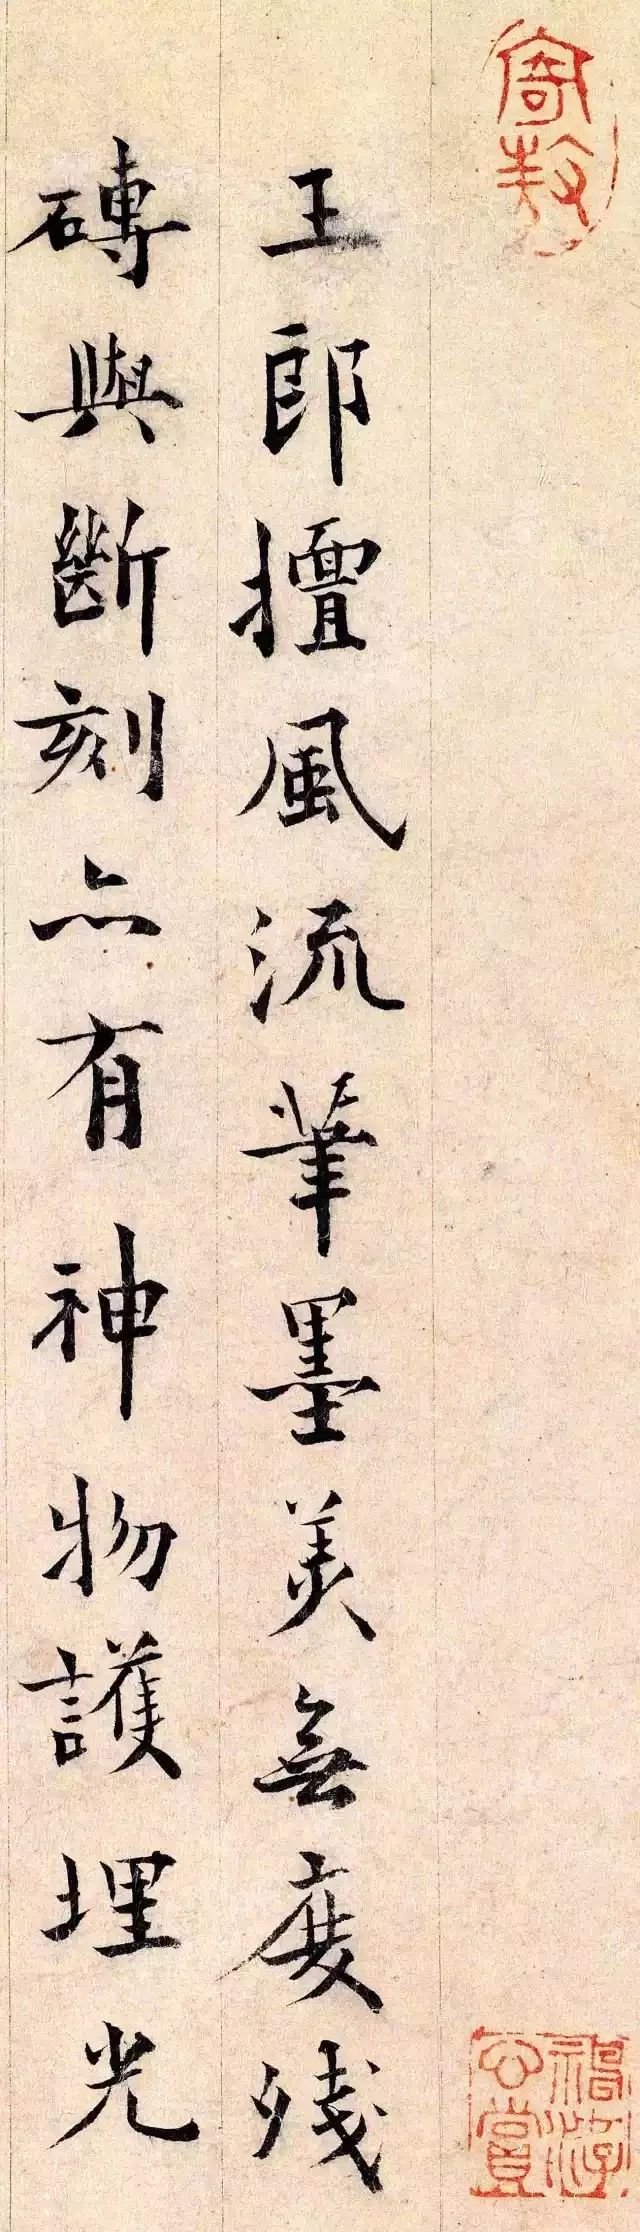 王郎擅風流筆墨美無度殘
磚與斷刻亦有神物護埋光
寄敖